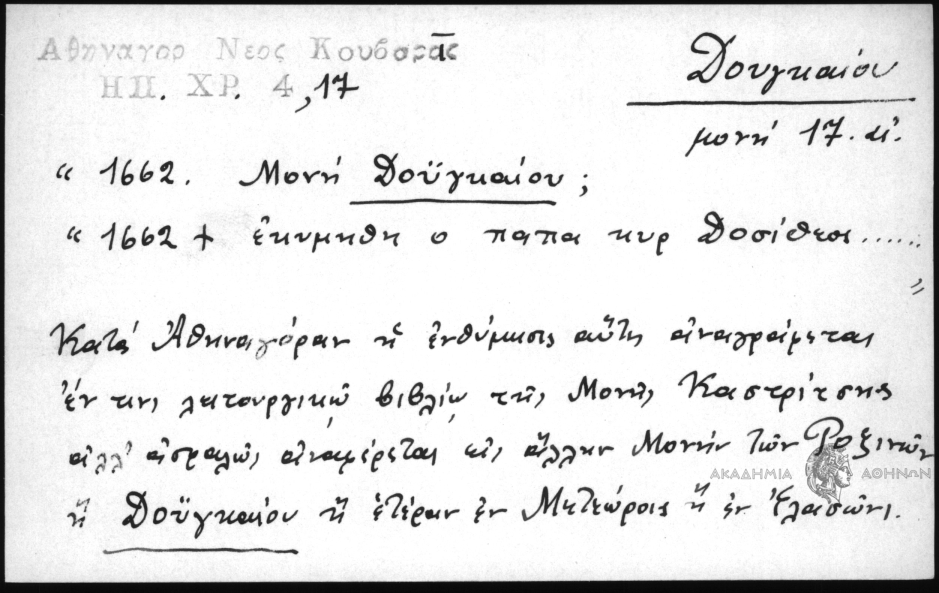 Αθηναγορ Νεος Κουβαρᾱς
ΗΠ. ΧΡ. 4, 17
Δουγκαίου
μονή 17. αἰ.
“ 1662. Μονή Δοϋγκαίου ;
“ 1662 + ἐκυμηθη ο παπα κυρ Δοσίθεοι ...... ”
Κατά Ἀθηναγόραν ἡ ἐνθύμισις αὕτη ἀναγράφεται
ἐν τινι λειτουργικῷ βιβλίῳ τῆς Μονῆς Καστρίτσης
ἀλλ' ἀσφαλῶς ἀναφέρεται εἰς ἄλλην Μονήν τῶν Ροξινῶν
ἤ Δοϋγκαίου ἤ ἑτέραν ἐν Μετεώροις ἤ ἐν Ἐλασῶνι.
ΑΚΑΔΗΜΙΑ ΑΘΗΝΩΝ